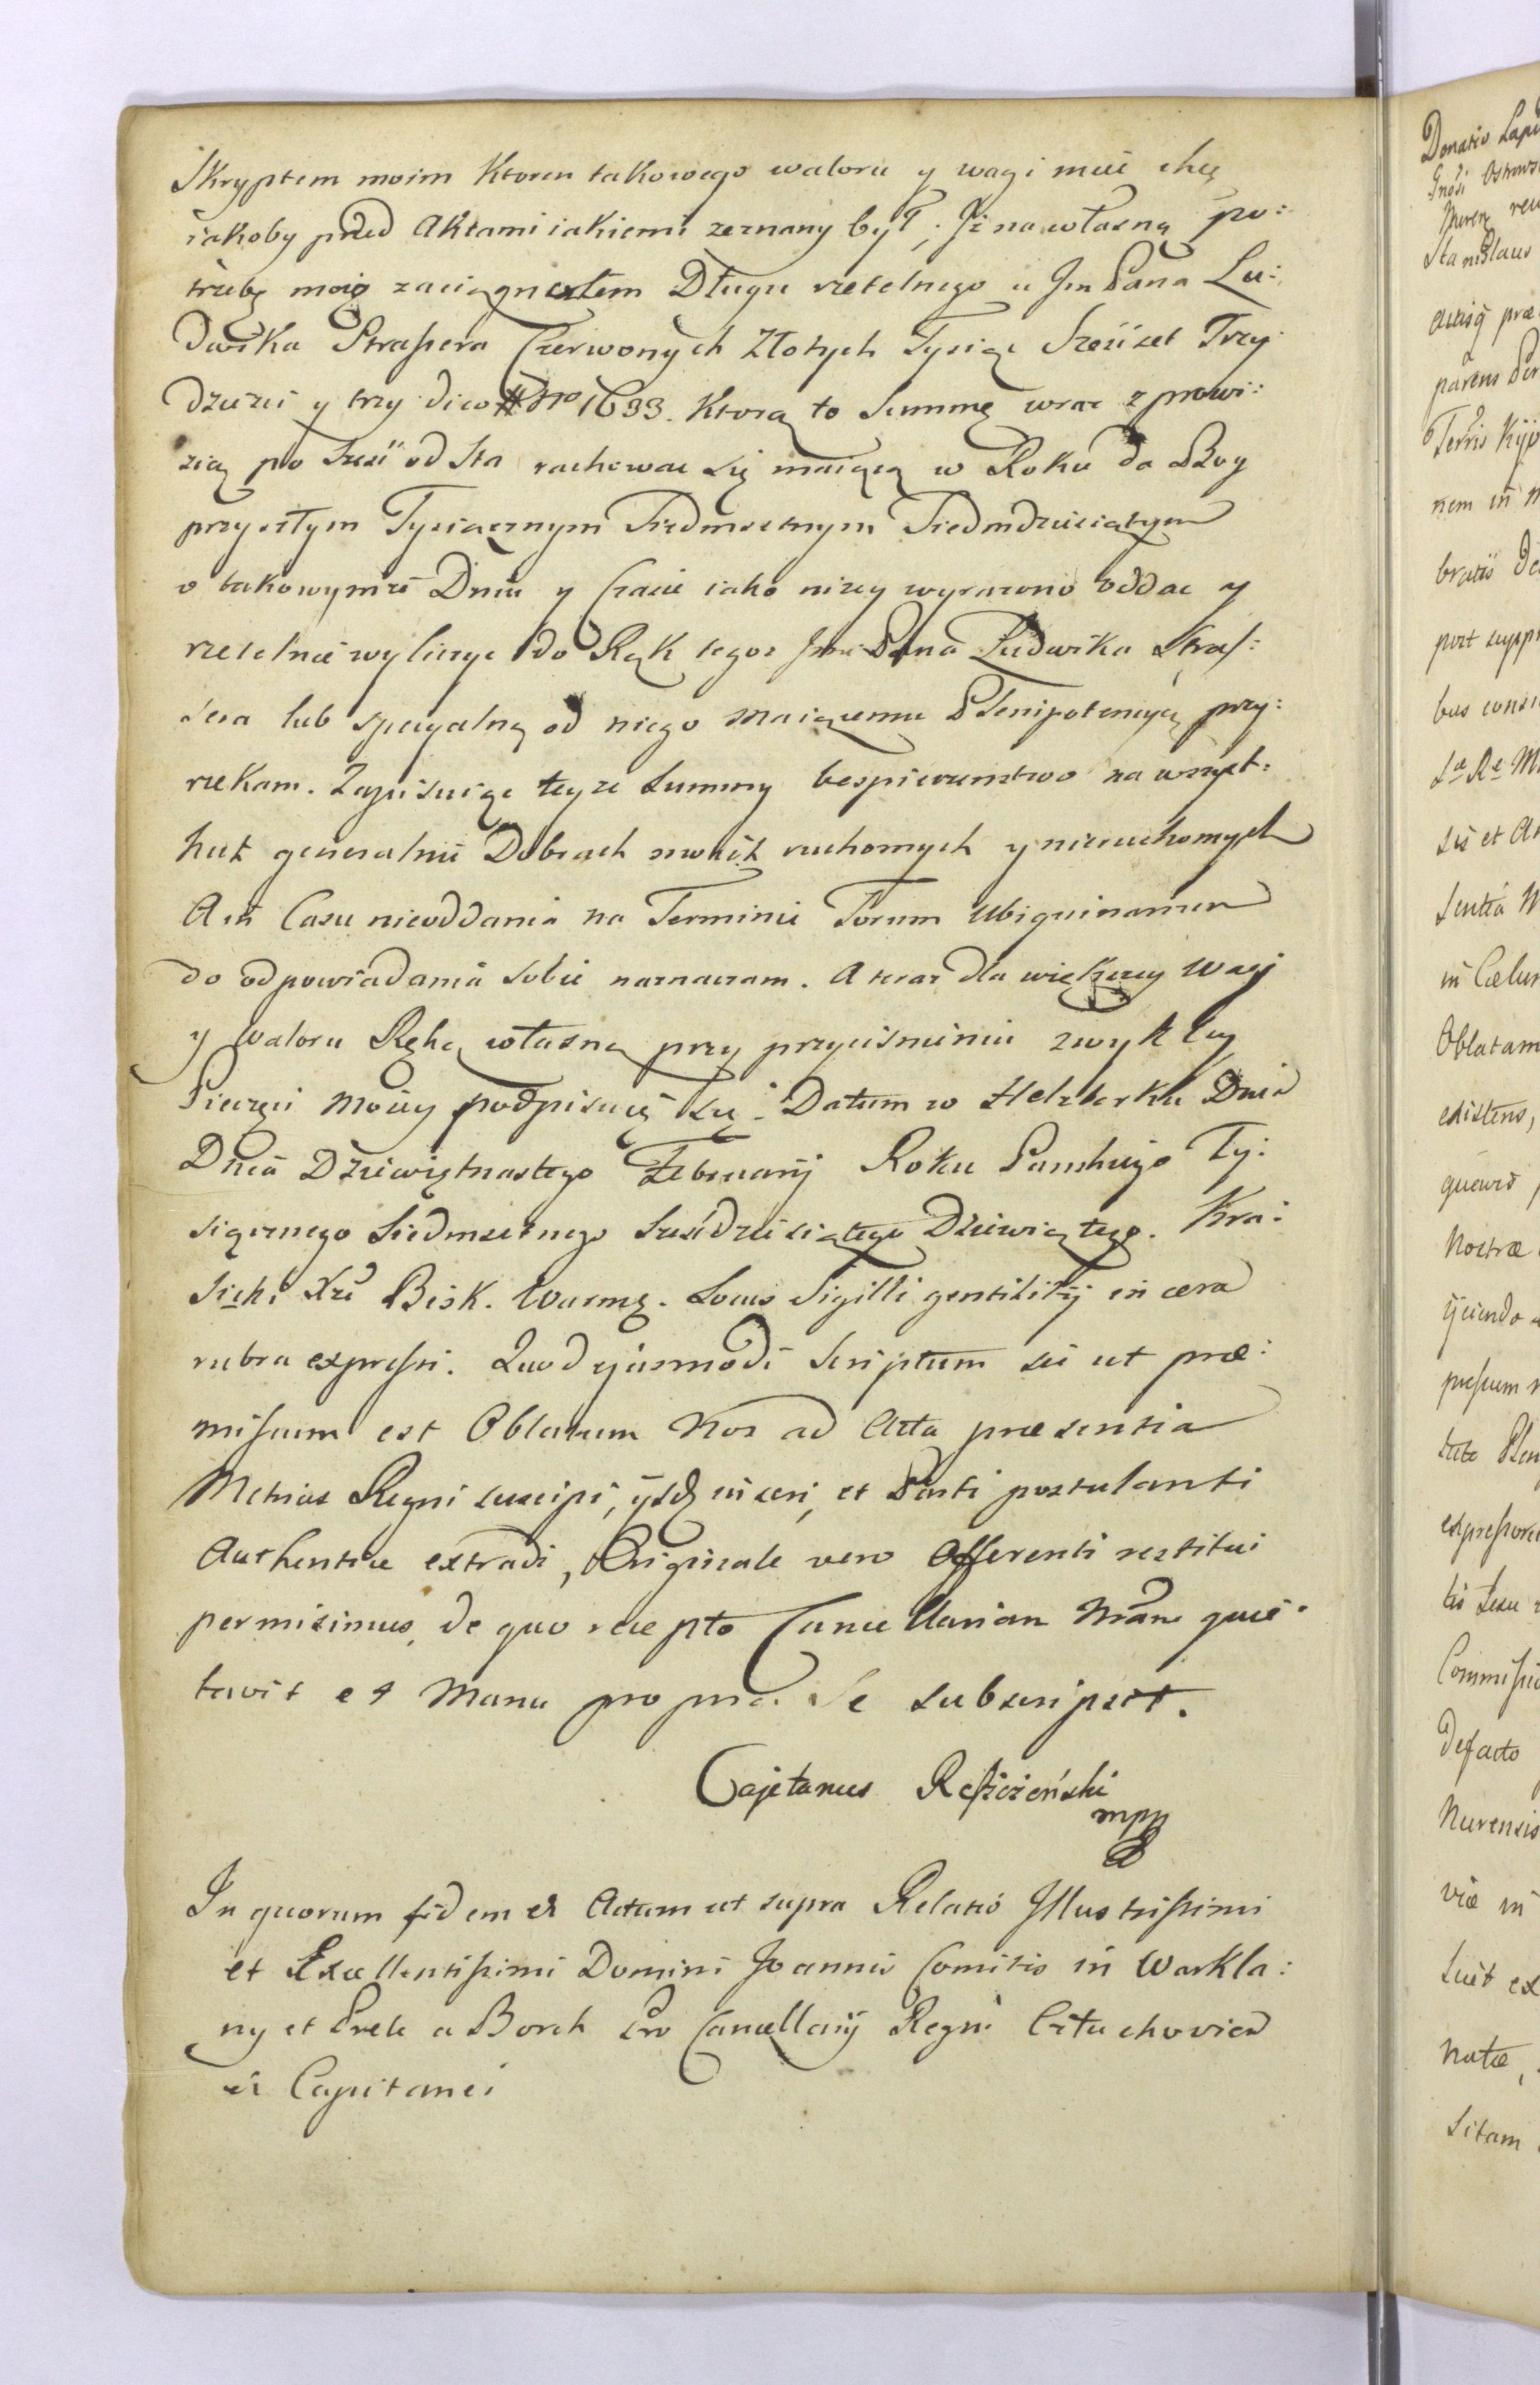 Skryptem moim ktoren takowego waloru y wagi mieć chcę
iakoby przed Aktami iakiemi zeznany był, Iż na własną po:
trzebę moię zaciągnęłem Długu rzetelnego u Jm Pana Lu:
dwika Straßera Czerwonych Złotych Tysiąc Sześćset Trzy
dzieści y trzy dico # Nro 1633. Ktorą to Summę wraz z prowi:
zią po sześć od Sta rachować się maiącą w Roku da Bog
przyszłym Tysiącznym Siedmsetnym Siedmdziesiątym
o takowymże Dniu y Czasie iako niżey wyrażono oddać y
rzetelnie wyliczyć do Rąk tegoż Jmci Pana Ludwika Stras:
sera lub specyalną od niego maiącemu Plenipotencyą przy:
rzekam. Zapisuiąc teyże Summy bespieczenstwo na wszyst:
kich generalnie Dobrach moich ruchomych y nieruchomych
A in Casu nieoddania na Terminie Forum Ubiquinarium
do odpowiadania sobie naznaczam. A teraz dla większey Wagi
y Waloru Ręką własną przy przyciśnieniu zwykłey
Pieczęci moiey podpisuię się. Datum w Helzberku Dnia
Dnia Dziewiętnastego Februarij Roku Panskiego Ty:
siącznego Siedmsetnego Sześćdziesiątego Dziewiątego. Kra:
sicki Xże Bisk. Warmę. Locus Sigilli gentilitij in cera
rubra expressi. Quod ejusmodi Scriptum sic ut præ:
mißum est Oblatum Nos ad Acta præsentia
Metrices Regni suscipi, ijsdq inseri, et Parti postulanti
Authentice extradi, Originale vero Offerenti restitui
permisimus, de quo recepto Cancellariam Nram quie:
tavit et Manu propria Se subscripsit.
Cajetanus Reßczeński
mpp
In quorum fidem etc Actum ut supra Relatio Illustrißimi
et Excellentißimi Domini Joannis Comitis in Warkla:
ny et Prele a Borch Pro Cancellarij Regni
Capitanei
Stanislaus
nem in
Oblatam
existens,
Nostræ
Defacto
Nurensis
viæ in
natæ,
Sitam